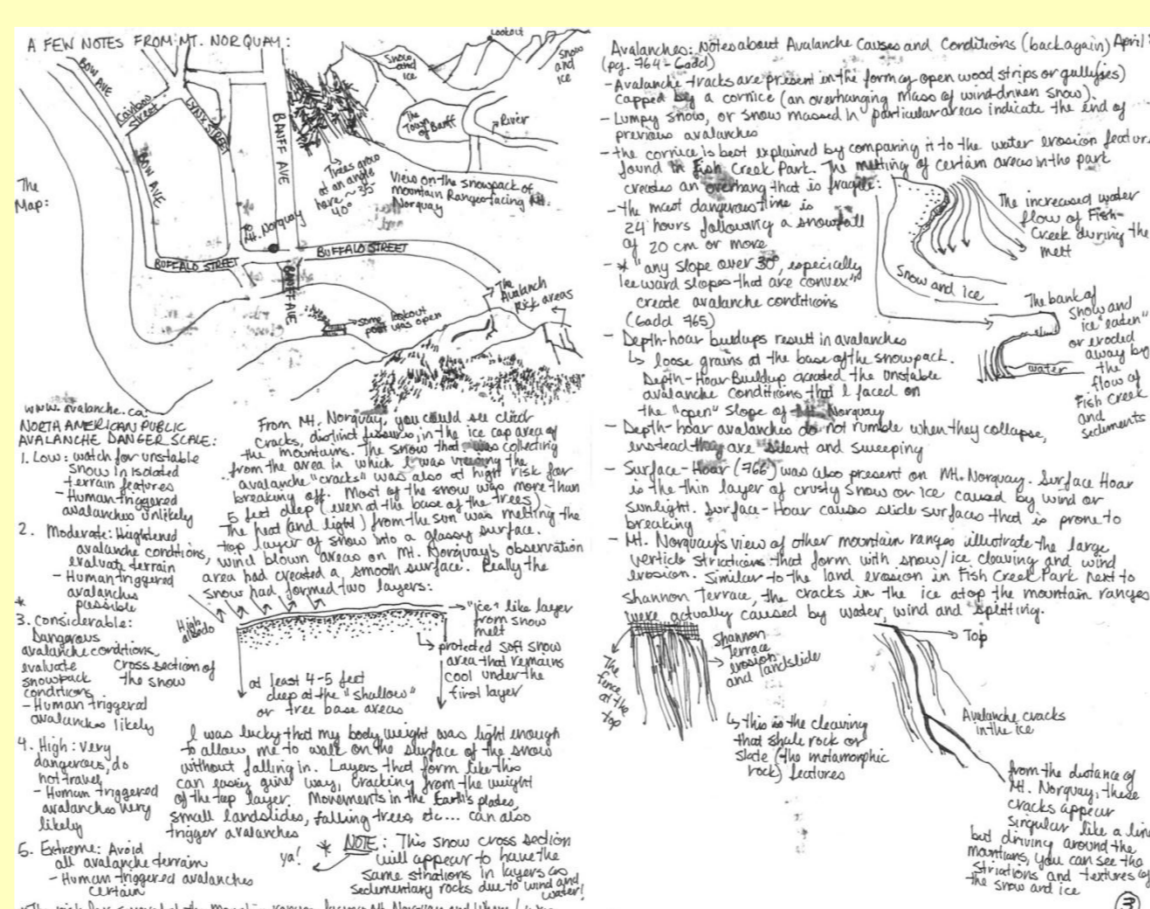 A FEW NOTES FROM MT. NORQUAY:
BOW AVE
Caribou Street
LYNX STREET
BANFF AVE
BOW AVE
The
Map:
to Mt. Norquay
BUFFALO STREET
BUFFALO STREET
BANFF AVE
Snow and ice
Lookout
Snow and ice
"The Town of Banff
River
Trees grow
at an angle
here ~ 35°
40°
View on the snowpack of
mountain Ranges facing Mt.
Norquay
some lookout
post was open
The
Avalanch
Risk areas
www.avalanche.ca:
NORTH AMERICAN PUBLIC
AVALANCHE DANGER SCALE:
1. Low: watch for unstable
snow in isolated
terrain features
- Human triggered
avalanches unlikely
2. Moderate: Heightened
avalanche conditions,
evaluate terrain
- Human triggered
avalanches
possible
*
3. Considerable:
Dangerous
avalanche conditions,
evaluate
snowpack
conditions
- Human triggered
avalanches likely
4. High: very
dangerous, do
not travel
- Human triggered
avalanches very
likely
5. Extreme: Avoid
all avalanche terrain
- Human triggered avalanches
certain
From Mt. Norquay, you could see clear
cracks, distinct fissures, in the ice cap area of
the mountains. The snow that was collecting
from the area in which I was viewing the
avalanche "cracks" was also at hight risk for
breaking off. Most of the snow was more than
5 feet deep (even at the base of the trees).
The heat (and light) from the sun was melting the
top layer of snow into a glassy surface.
wind blown areas on Mt. Norquay's observation
area had created a smooth surface. Really the
snow had formed two layers:
High albedo
"ice" like layer
from snow
melt
protected soft snow
area that remains
cool under the
first layer
Cross section of
the snow
at least 4-5 feet
deep at the "shallow"
or tree base areas
I was lucky that my body weight was light enough
to allow me to walk on the surface of the snow
without falling in. Layers that form like this
can easily give way, cracking from the weight
of the top layer. Movements in the Earth's plates,
small landslides, falling trees, etc... can also
trigger avalanches
ya!
* NOTE: This snow cross section
will appear to have the
same strations in layers as
sedimentary rocks due to wind and
water!
Avalanches: Notes about Avalanche Causes and Conditions (back again) April
(pg. 764 - Gadd)
- Avalanche tracks are present in the form of open wood strips or gullyies)
capped by a cornice (an overhanging mass of wind-driven snow).
- Lumpy snow, or snow massed in particular areas indicate the end of
previous avalanches
- the cornice is best explained by comparing it to the water erosion
found in Fish Creek Park. The melting of certain areas in the park
creates an overhang that is fragile:
- the most dangerous time is
24 hours following a snowfall
of 20 cm or more
- * "any slope over 30°, especially
leeward slopes that are convex"
create avalanche conditions
(Gadd 765)
The increased water
flow of Fish-
Creek during the
melt
Snow and Ice
The bank of
snow and
ice "eaten"
or eroded
away by
the
flow of
Fish Creek
and
sediments
water
- Depth-hoar buildups result in avalanches
loose grains at the base of the snowpack.
Depth-Hoar Buildup created the unstable
avalanche conditions that I faced on
the "open" slope of Mt. Norquay
- Depth-hoar avalanches do not rumble when they collapse,
instead they are silent and sweeping
- Surface-Hoar (766) was also present on Mt. Norquay. Surface Hoar
is the thin layer of crusty snow or ice caused by wind or
sunlight. Surface-Hoar causes slide surfaces that is prone to
breaking
- Mt. Norquay's view of other mountain ranges illustrate the large
verticle striations that form with snow/ice cleaving and wind
erosion. Similar to the land erosion in Fish Creek Park next to
Shannon Terrace, the cracks in the ice atop the mountain ranges
were actually caused by water, wind and splitting.
The fence at the top
Shannon
Terrace
erosion
and landslide
this is the cleaving
that shale rock or
slate (the metamorphic
rock) features
Top
Avalanche cracks
in the ice
from the distance of
Mt. Norquay, these
cracks appear
singular like a line
but driving around the
mountians, you can see the
striations and textures of
the snow and ice
3